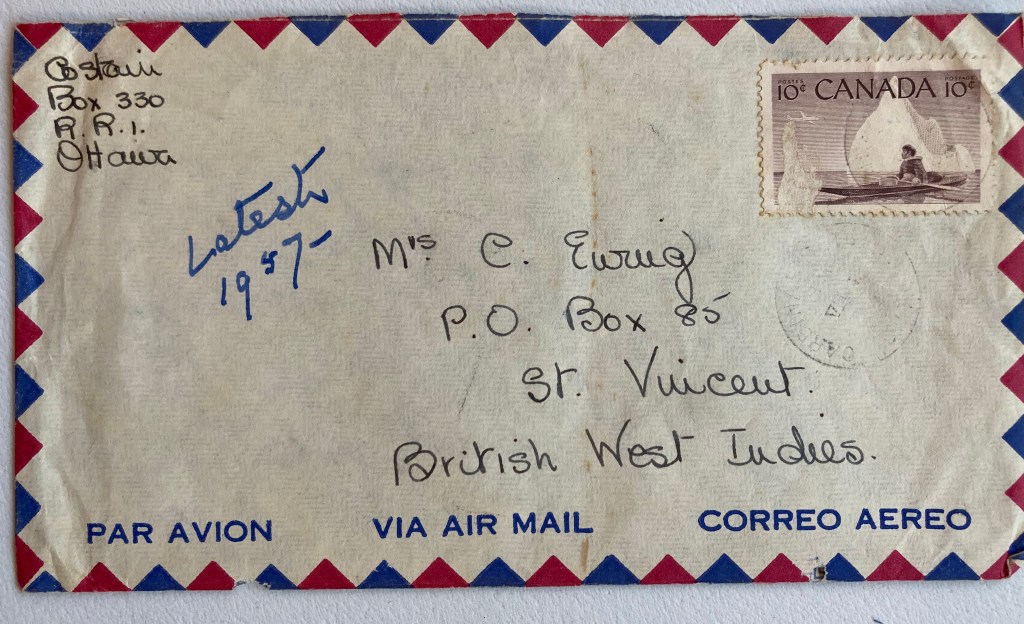 Costain
Box 330
R.R.1.
Ottawa
POSTES POSTAGE
10¢ CANADA 10¢
Latest
1957-
Mrs. C. Ewing
P.O. Box 85
St. Vincent.
British West Indies.
PAR AVION VIA AIR MAIL CORREO AEREO